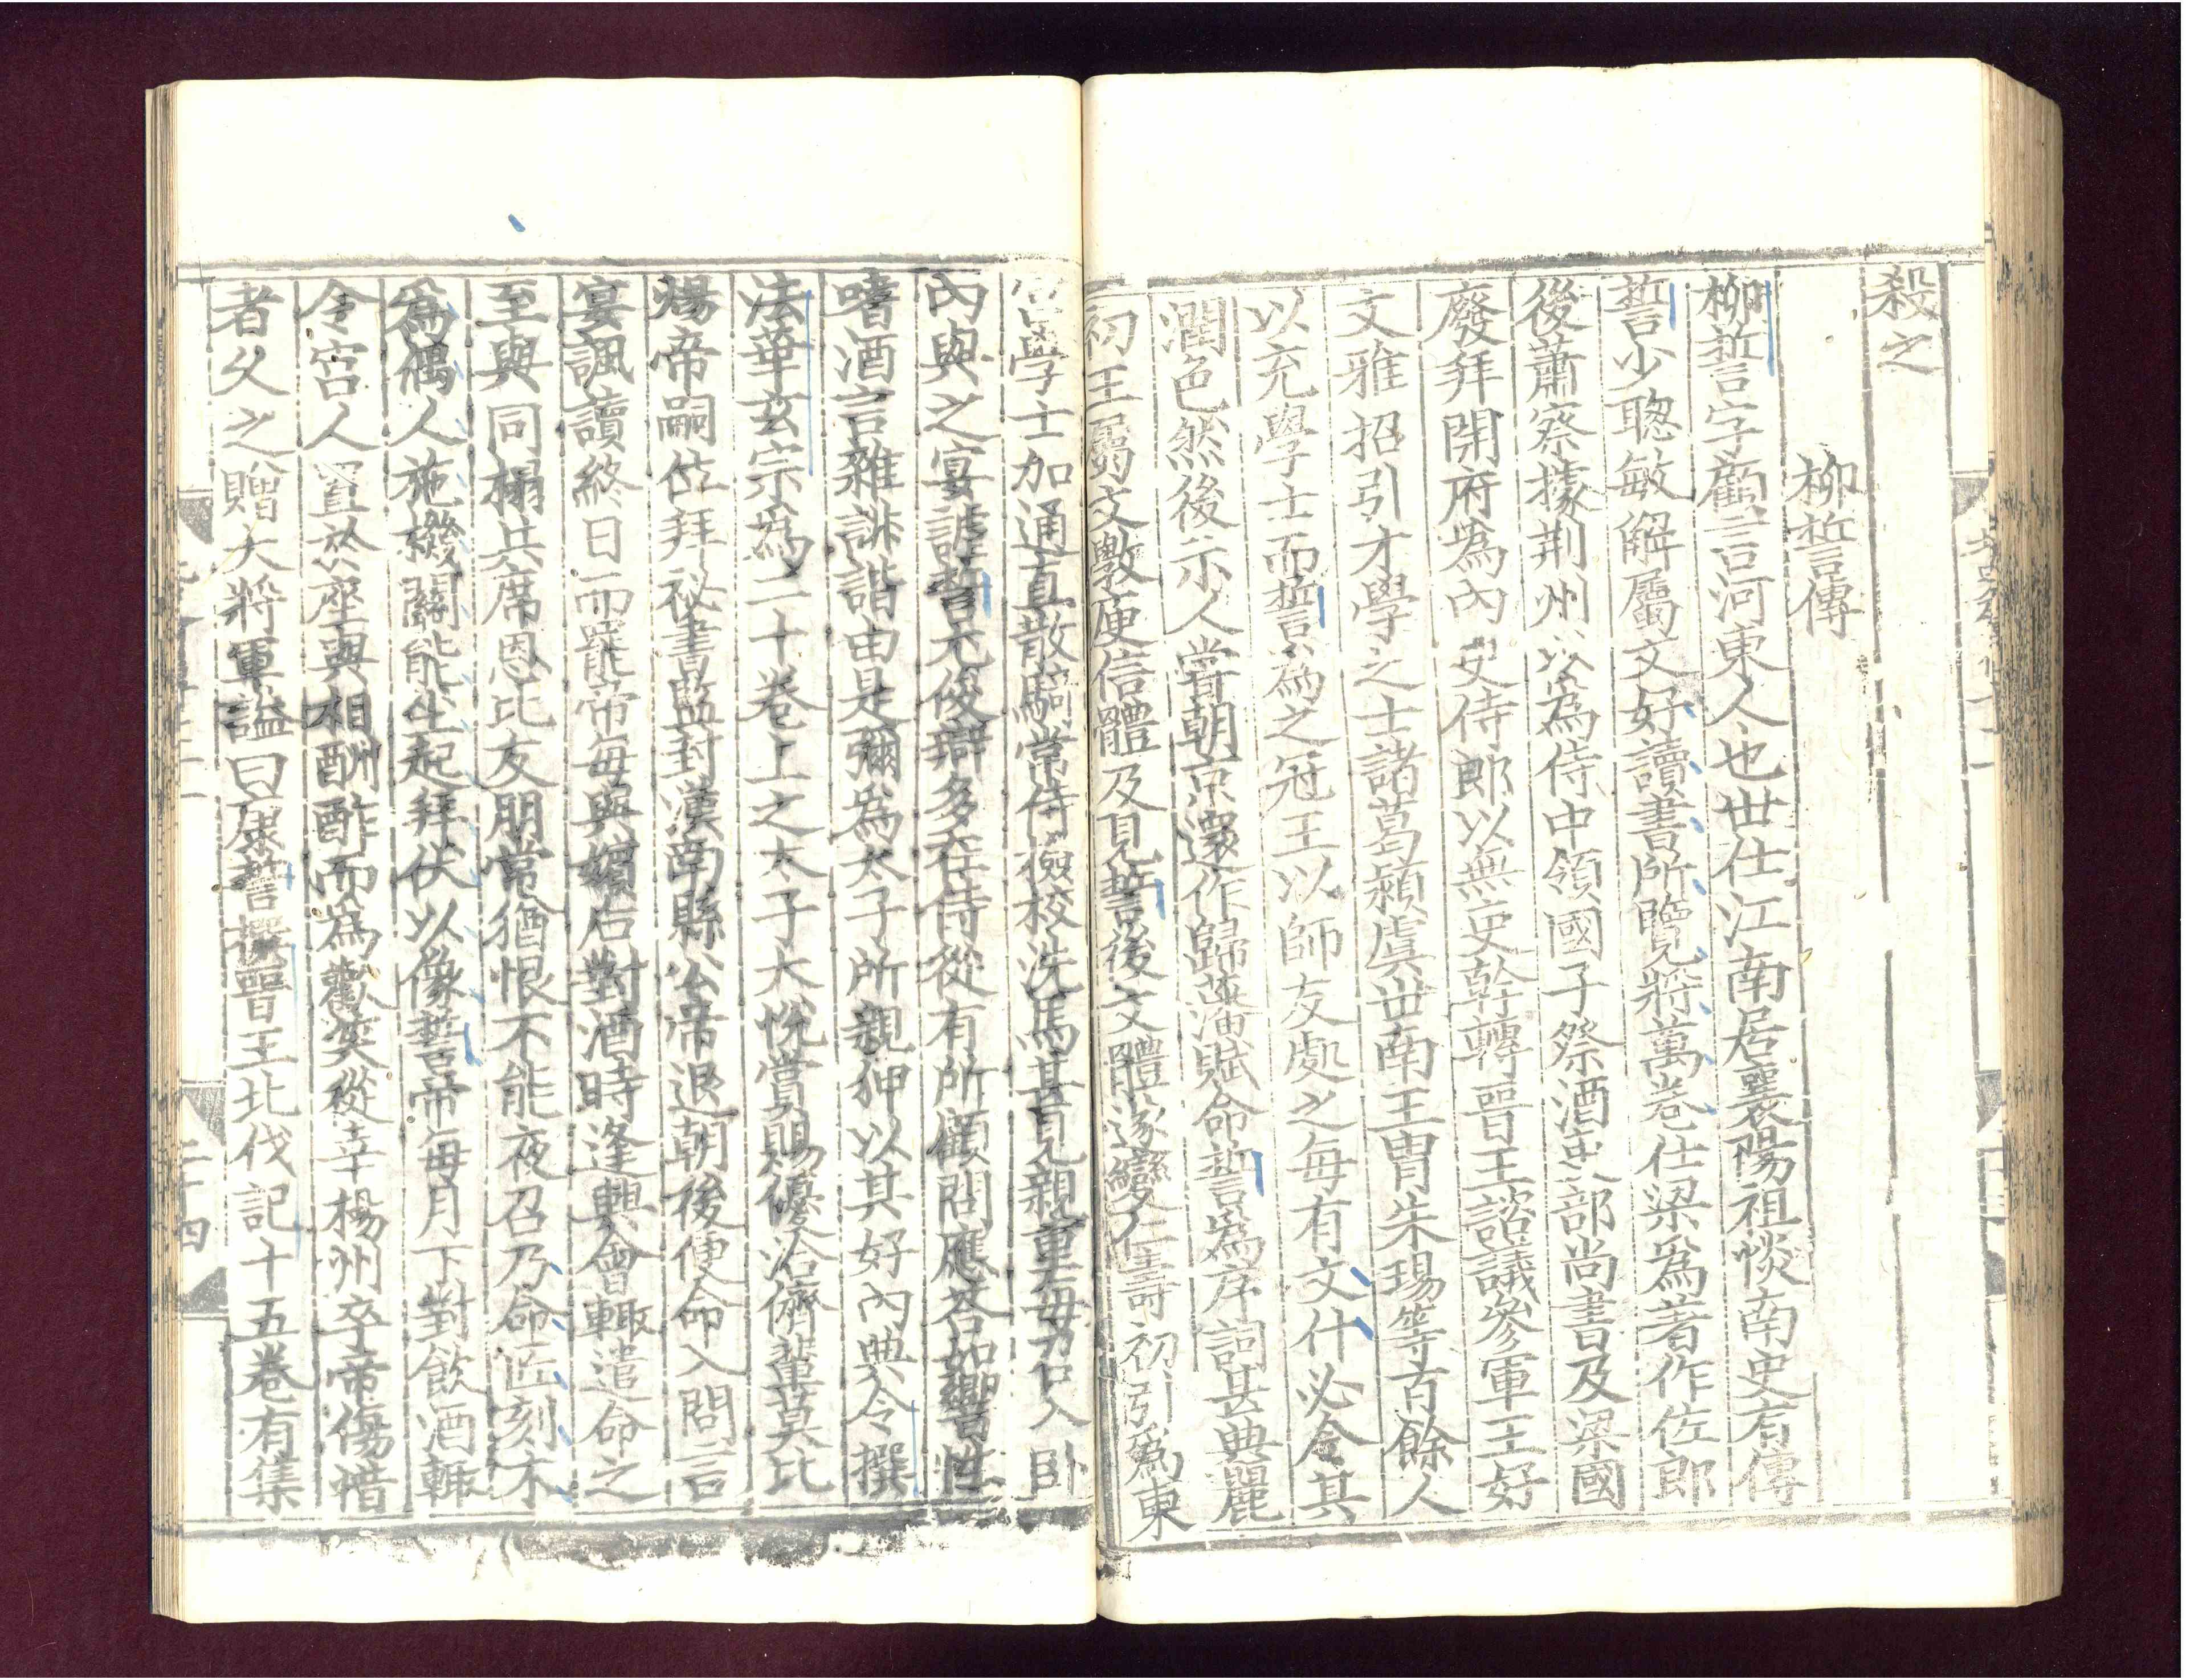 殺之
柳䛒傳
柳䛒字顧言河東人也世仕江南居襄陽祖惔南史有傳
䛒少聰敏解屬文好讀書所覽將萬卷仕梁爲著作佐郎
後蕭察據荆州以爲侍中領國子祭酒吏部尚書及梁國
廢拜開府爲內史侍郎以無吏幹轉晉王諮議參軍王好
文雅招引才學之士諸葛潁虞世南王胄朱瑒等百餘人
以充學士而䛒爲之冠王以師友處之每有文什必令其
潤色然後示人嘗朝京還作歸藩賦命䛒爲序詞甚典麗
初王屬文斆庾信體及見䛒後文體遂變仁壽初引爲東
宮學士加通直散騎常侍檢校洗馬甚見親重每召入卧
內與之宴謔䛒尤俊辯多在侍從有所顧問應荅如響性
嗜酒言雜誹諧由是彌爲太子所親狎以其好內典令撰
法華玄宗爲二十卷上之太子大悅賞賜優洽儕輩莫比
煬帝嗣位拜祕書監封漢南縣公帝退朝後便命入閤言
宴諷讀終日而罷帝每與嬪后對酒時逢興會輙遣命之
至與同榻共席恩比友朋常猶恨不能夜召乃命匠刻木
爲偶人施機關能坐起拜伏以像䛒帝每月下對飲酒輙
令宮人置於座與相酬酢而爲歡笑從幸楊州卒帝傷惜
者久之贈大將軍謚曰康䛒撰晉王北伐記十五卷有集
二十四